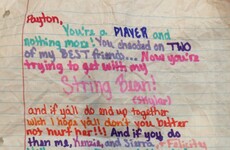 Payton,
You're a PLAYER and
nothing more! You cheated on TWO
of my BEST friends... Now you're
trying to get with my
String Bean!
(Skylar)
and if yall do end up together
wich I hope yall don't you better
not hurt her!!! And if you do
then me, Kenzie, and Sierra, + Felicity